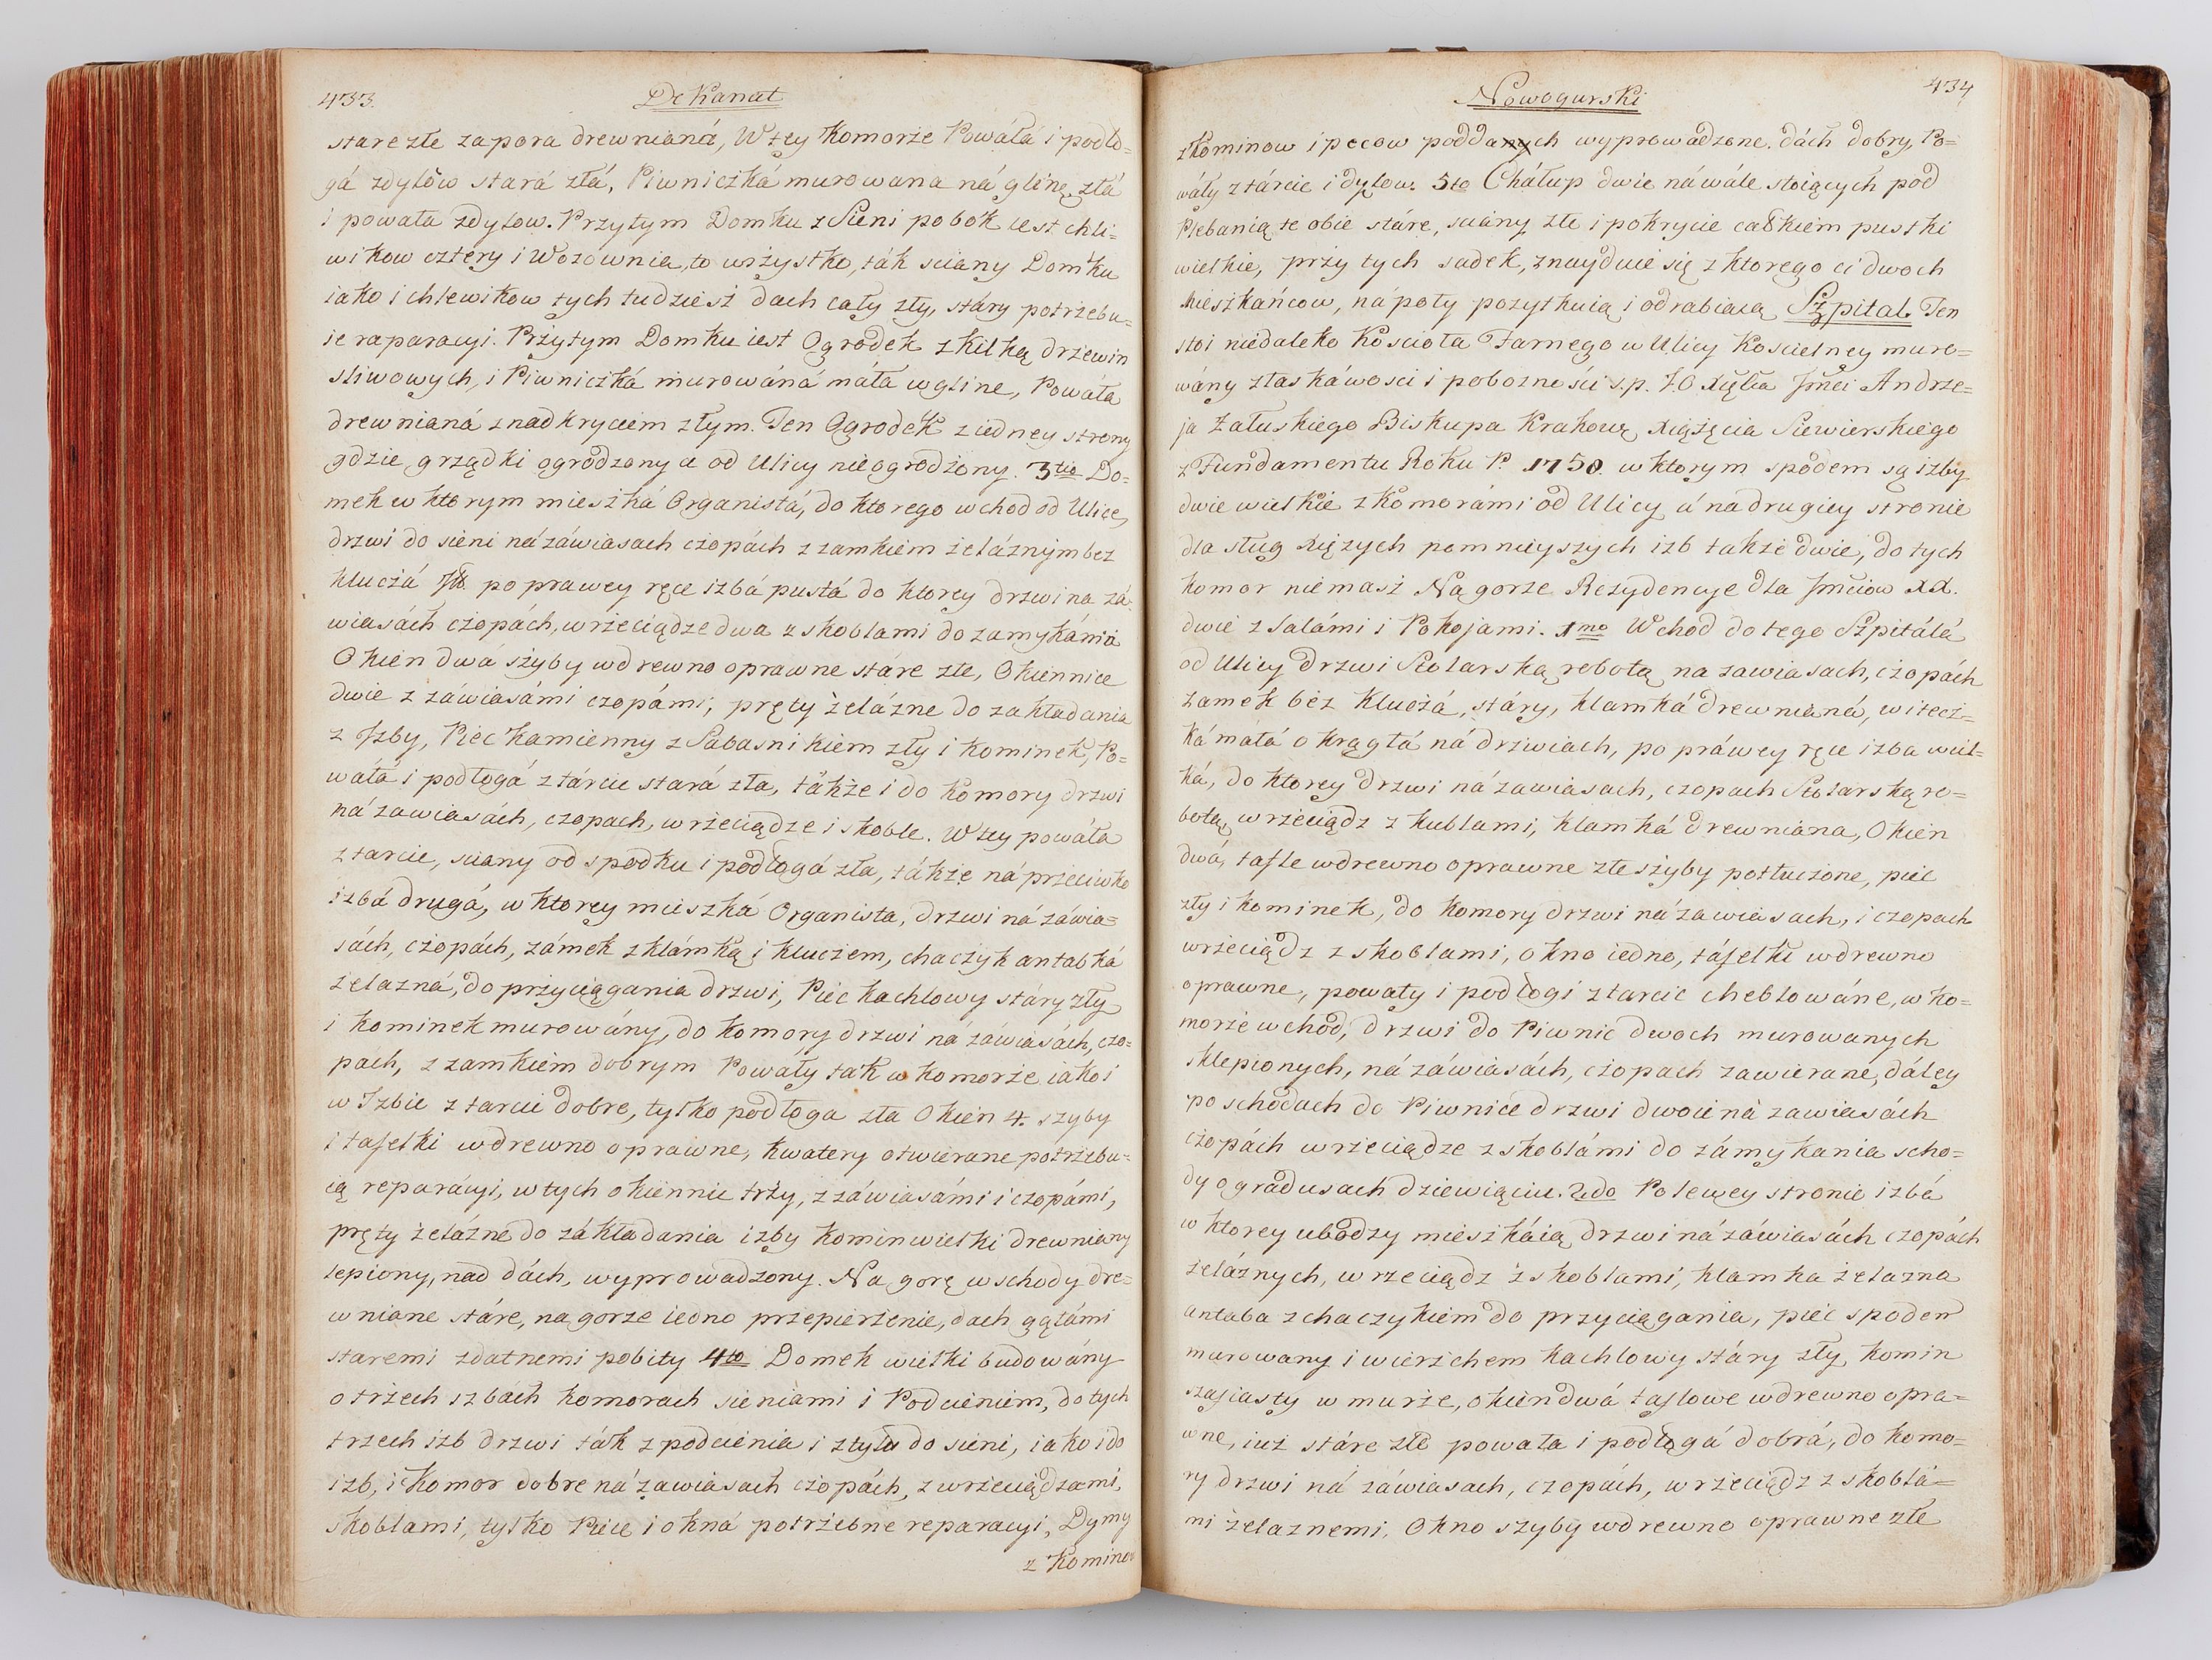 433.
Dekanat
stare złe zapora drewnianá, W tey Komorze Powáła i podło=
gá zdylów stará złá, Piwniczká murowana ná glinę złá
i powała zdylow. Przytym Domku z Sieni pobok iest chli=
wikow cztery i Wozownia, to wszystko, ták sciany Domku
iako i chlewikow tych tudziesz dach cały zły, stáry potrzebu=
ie raparacyi. Przytym Domku iest Ogrodek z kilką drzewin
sliwowych, i Piwniczká murowáná máła w gline, Powáła
drewnianá z nadkryciem złym. Ten Ogrodek z iedney strony
gdzie grządki ogrodzony a od Ulicy nieogrodzony. 3tio Do=
mek w ktorym mieszká Organistá, do ktorego wchod od Ulice,
drzwi do sieni ná záwiasach czopách z zamkiem żeláznym bez
kluczá po prawey ręce izbá pustá do ktorey drzwi na zá=
wiasách czopách, wrzeciądze dwa z skoblami do zamykánia
Okien dwá szyby wdrewno oprawne stáre złe, Okiennice
dwie z záwiasámi czopámi, pręty żelázne do zakładania
z Izby, Piec kamienny z Sabasnikiem zły i kominek, Po=
wáła i podłogá z tárcic stará zła, tákże i do Komory drzwi
ná zawiasách, czopach, wrzeciądze i skoble. W tey powáła
z tarcic, sciany od spodku i podłogá zła, tákże ná przeciwko
izbá drugá, w ktorey mieszká Organista, drzwi ná záwia=
sách, czopách, zámek z klámką i kluczem, chaczyk antabká
żelazná, do przyciągania drzwi, Piec kachlowy stáry zły
i kominek murowány, do komory drzwi ná záwiasách, czo=
pach, z zamkiem dobrym Powáły ták w komorze iako i
w Izbie z tarcic dobre, tylko podłoga zła Okien 4. szyby
i tafelki wdrewno oprawne, kwatery otwierane potrzebu=
ią reparácyi, w tych okiennic trzy, z záwiasámi i czopámi,
pręty żelázne do zákładania izby komin wielki drewniany
lepiony, nad dách, wyprowadzony. Na gorę wschody dre=
wniane stáre, na gorze iedno przepierzenie, dach gątámi
staremi zdatnemi pobity 4to Domek wielki budowány
o trzech izbách komorach sieniami i Podcieniem, do tych
trzech izb drzwi ták z podcienia i ztyłu do sieni, iako i do
izb, i Komor dobre ná zawiasach czopách, z wrzeciądzami,
skoblami, tylko Piece i okná potrzebne reparacyi, Dymy
z Kominow
Nowogurski
434
z Kominow i pecow poddanych wyprowadzone. dách dobry, Po=
wáły z tárcic i dylow. 5to Chałup dwie ná wále stoiących pod
Plebanią te obie stáre, sciany złe i pokrycie całkiem pustki
wielkie, przy tych sadek, znayduie się z ktorego ci dwoch
Mieszkáncow, ná poły pozytkuią i odrabiaią Szpital. Ten
stoi niedaleko Kościoła Farnego w Ulicy Koscielney muro=
wány z łaskáwosci i poboznosci s.p. J.O. Xięcia Jmci Andrze=
ja Załuskiego Biskupa Krakowg Xiążęcia Siewierskiego
z Fundamentu Roku P. 1750. w ktorym spodem są izby
dwie wielkie z Komorámi od Ulicy á na drugiey stronie
dla sług Xięzych pomnieyszych izb także dwie, do tych
komor niemasz Na gorze Rezydencye dla Jmciow XX.
dwie z Salámi i Pokojami. 1mo Wchod do tego Szpitálá
od Ulicy Drzwi Stolarską robotą na zawiasach, czopách
zamek bez Kluczá, stáry, klamká drewnianá, w itecz=
ká máłá okrągłá ná drzwiach, po práwey ręce izba wiel=
ká, do ktorey drzwi ná zawiasach, czopach Stolarską ro=
botą wrzeciądz z kublami, klamká drewniana, Okien
dwá, tafle wdrewno oprawne złe szyby potłuczone, piec
zły i kominek, do komory drzwi ná zawiasach, i czopach
wrzeciądz z skoblami, okno iedne, táfelki wdrewno
oprawne, powały i podłogi z tarcic cheblowáne, w ko=
morze wchod, drzwi do Piwnic dwoch murowanych
sklepionych, ná záwiasách, czopach zawierane, dáley
po schodach do Piwnice drzwi dwoie ná zawiasách
czopách wrzeciądze z skoblámi do zámykania scho=
dy o gradusach dziewiąciu. 2do Po lewey stronie izbá
w ktorey ubodzy mieszkáią drzwi ná záwiasách czopách
żeláznych, wrzeciądz z skoblami, klamka żelazna
antaba z chaczykiem do przyciągania, piec spodem
murowany i wierzchem kachlowy stáry zły, komin
szafiasty w murze, okien dwá taflowe wdrewno opra=
wne, iuż stáre złe powała i podłogá dobrá, do komo=
ry drzwi ná záwiasach, czopách, wrzeciądz z skoblá=
mi żelaznemi, Okno szyby wdrewno oprawne złe